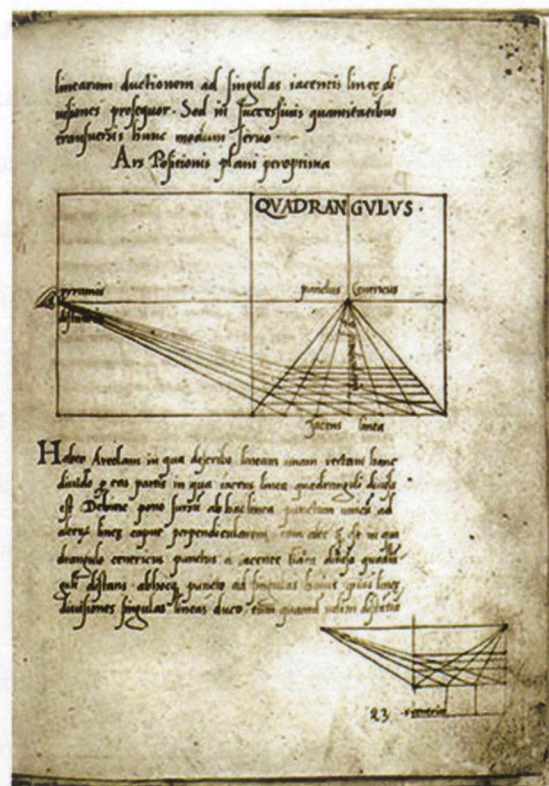 linearum ductionem ad singulas iacentis lineę di
uisiones prosequor. Sed in successiuis quantitatibus
transuersis hunc modum seruo
Ars Positionis plani peroptima
QVADRANGVLVS.
pyramis
punctus Centricus
distantia
Jacens linea
Habeo Areolam in qua describo lineam unam rectam hanc
diuido eas partis in qua iacens linea quadranguli diuisa
est Dehinc pono sursum ab hac linea punctum unicum ad
alterum lineę caput perpendicularem
drangulo centricus punctus a iacente
distans ab hocque puncto ad singulas huius
diuisiones singulas lineas duco
23